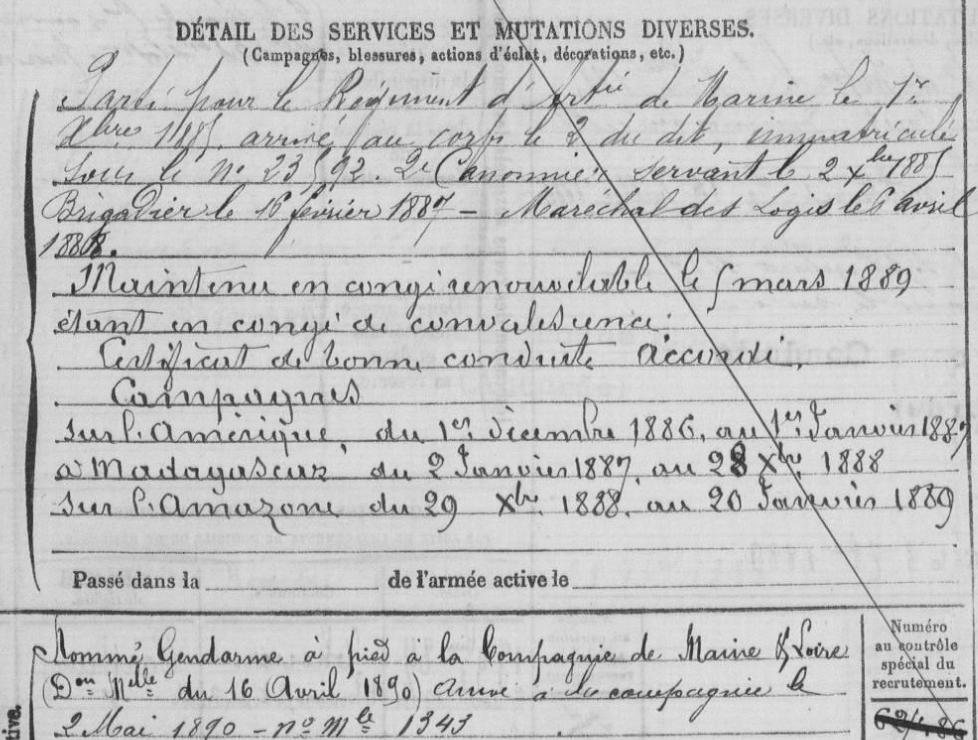 DÉTAIL DES SERVICES ET MUTATIONS DIVERSES.
(Campagnes, blessures, actions d'éclat, décorations, etc.)
Parti pour le Régiment d'Artie de Marine le 1er
Xbre 1885, arrivé au corps le 2 du dit, immatriculé
sous le no 23592. 2e Canonnier servant le 2 Xbre 1885
Brigadier le 16 février 1887 - Maréchal des Logis le 6 avril
1888.
Maintenu en congé renouvelable le 5 mars 1889
étant en congé de convalescence.
Certificat de bonne conduite Accordé.
Campagnes
sur l'Amérique, du 1er Décembre 1886, au 1er Janvier 1887
à Madagascar du 2 Janvier 1887, au 28 Xbre 1888
sur l'Amazone du 29 Xbre 1888, au 20 Janvier 1889
Passé dans la de l'armée active le
Nommé Gendarme à pied à la Compagnie de Maine & Loire
(Don Melle du 16 Avril 1890) arrivé à la compagnie le
2 Mai 1890 - no Mle 1343
Numéro
au contrôle
spécial du
recrutement.
tive.